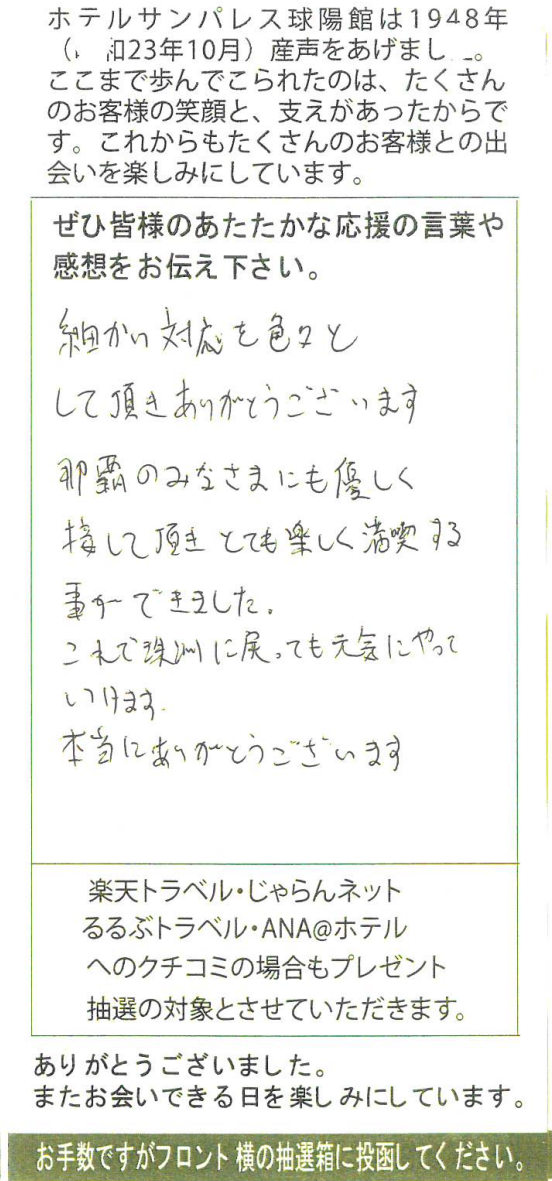 ホテルサンパレス球陽館は1948年
（ 和23年10月）産声をあげまし 。
ここまで歩んでこられたのは、たくさん
のお客様の笑顔と、支えがあったからで
す。これからもたくさんのお客様との出
会いを楽しみにしています。
ぜひ皆様のあたたかな応援の言葉や
感想をお伝え下さい。
細かい対応を色々と
して頂きありがとうございます
那覇のみなさまにも優しく
接して頂きとても楽しく満喫する
事ができました。
これで珠洲に戻っても元気にやって
いけます.
本当にありがとうございます
楽天トラベル・じゃらんネット
るるぶトラベル・ANA@ホテル
へのクチコミの場合もプレゼント
抽選の対象とさせていただきます。
ありがとうございました。
またお会いできる日を楽しみにしています。
お手数ですがフロント横の抽選箱に投函してください。